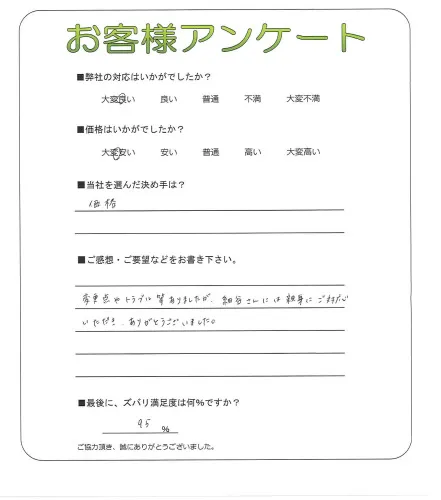 お客様アンケート
■弊社の対応はいかがでしたか？
大変良い 良い 普通 不満 大変不満
■価格はいかがでしたか？
大変安い 安い 普通 高い 大変高い
■当社を選んだ決め手は？
価格
■ご感想・ご要望などをお書き下さい。
変更点やトラブル等ありましたが、細谷さんには親身にご対応
いただき、ありがとうございました。
■最後に、ズバリ満足度は何％ですか？
95 ％
ご協力頂き、誠にありがとうございました。